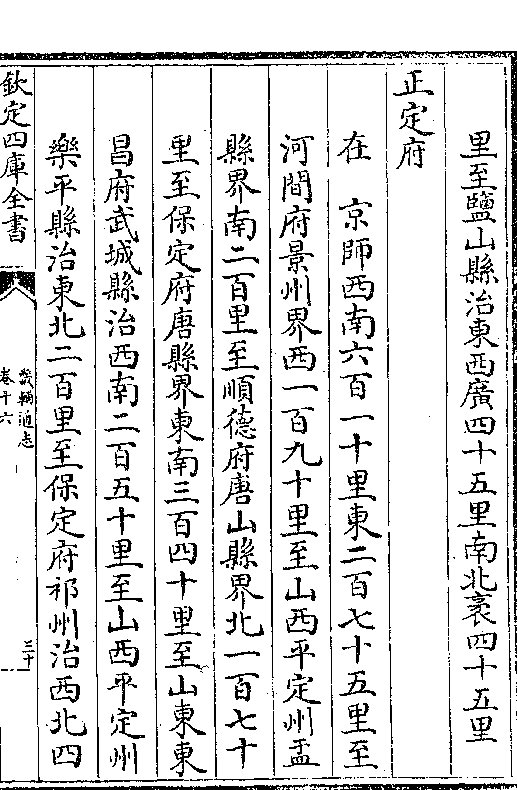 里至鹽山縣治東西廣四十五里南北袤四十五里
正定府
在　京師西南六百一十里東二百七十五里至
河間府景州界西一百九十里至山西平定州盂
縣界南二百里至順德府唐山縣界北一百七十
里至保定府唐縣界東南三百四十里至山東東
昌府武城縣治西南二百五十里至山西平定州
樂平縣治東北二百里至保定府祁州治西北四
欽定四庫全書
畿輔通志
卷十六
三十